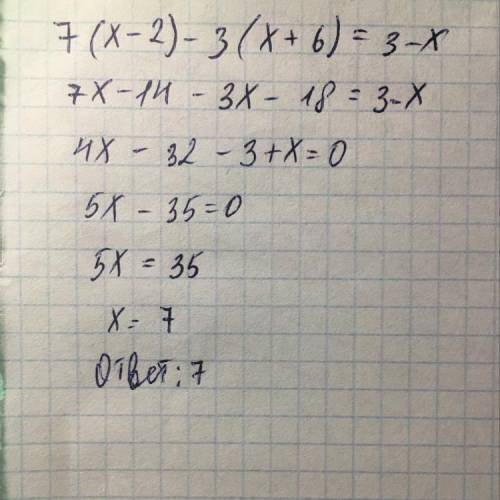 7(x-2)-3(x+6)=3-x
7x-14-3x-18=3-x
4x-32-3+x=0
5x-35=0
5x=35
x=7
Ответ: 7